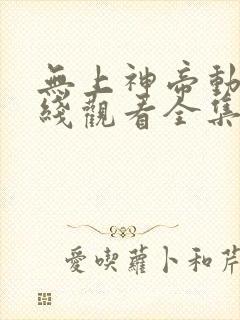 無上神帝動
綫觀看全集
愛喫蘿卜和芹